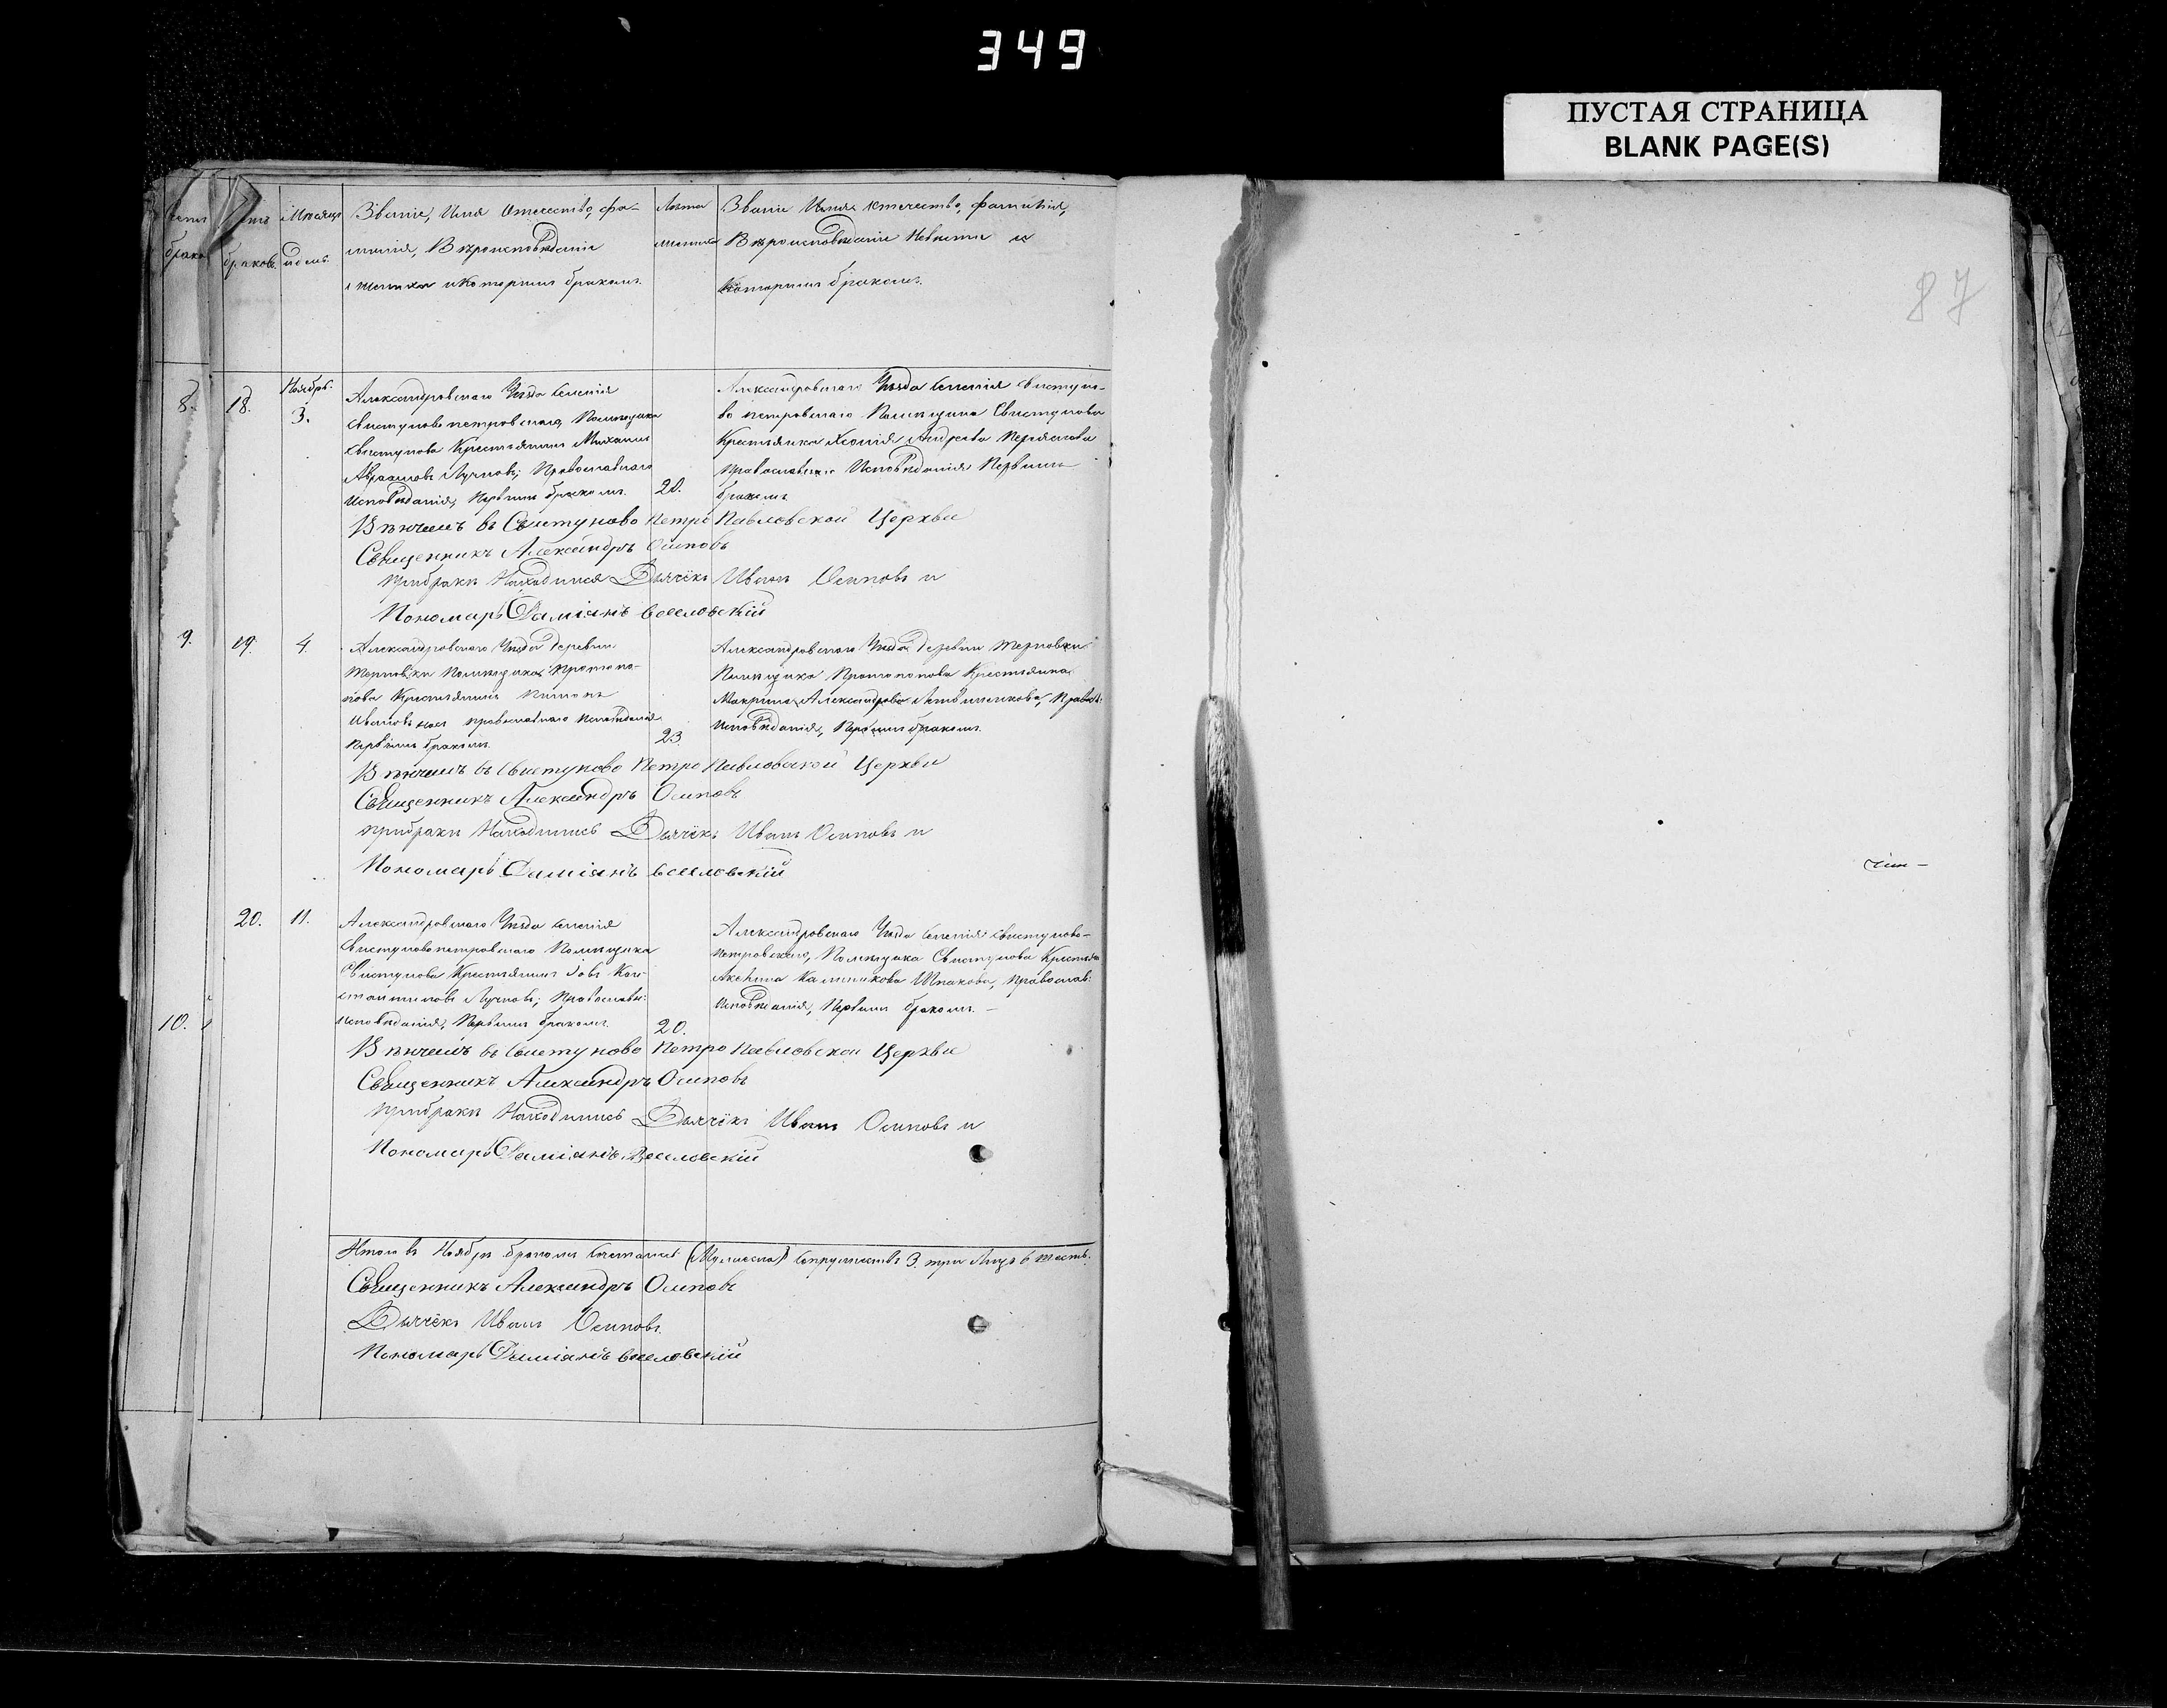 349
ПУСТАЯ СТРАНИЦА
BLANK PAGE(S)
87
браков. Мѣсяцъ
и день.
Званіе, Имя Отечество, фа-
милія, Вѣроисповѣданіе
и которымъ бракомъ.
Лѣта
жениха
Званіе Имя отечество, фамилія,
Вѣроисповѣданіе Невѣсты и
Которымъ бракомъ.
8. 18. Ноябрь.
3.
Александровскаго Уѣзда Селенія
Свистуновопетровскаго, Помѣщика
Свистунова Крестьянинъ Михаилъ
Авраамовъ Лучновъ; Православнаго
Исповѣданія, Первымъ бракомъ.
20.
Александровскаго Уѣзда Селенія Свистуно-
во петровскаго Помѣщика Свистунова
Крестьянка Андреева
Православнаго Исповѣданія Первымъ
бракомъ
Вѣнчалъ въ Свистуново Петро Павловской Церкви
Священникъ Александръ Осиповъ
При бракѣ Находился Дьячекъ Иванъ Осиповъ и
Пономарь Даміанъ Веселовскій
9. 19. 4.
Александровскаго Уѣзда Деревни
Терновки Помѣщика Протопо-
пова Крестьянинъ
Ивановъ православнаго Исповѣданія
Первымъ бракомъ.
23.
Александровскаго Уѣзда Деревни Терновки
Помѣщика Протопопова Крестьянка
Макрина Александрова Литвиненкова, Правос:
Исповѣданія, Первымъ бракомъ.
Вѣнчалъ въ Свистуново Петро Павловской Церкви
Священникъ Александръ Осиповъ
при бракѣ Находились Дьячекъ Иванъ Осиповъ и
Пономарь Даміанъ Веселовскій
20. 11.
10.
Александровскаго Уѣзда Селенія
Свистуновопетровскаго Помѣщика
Свистунова Крестьянинъ Іовъ Кон-
стантиновъ Лучновъ; Православн:
исповѣданія, Первымъ бракомъ.
20.
Александровскаго Уѣзда Селенія Свистуново-
петровскаго, Помѣщика Свистунова Крестьян
Калиникова Шпакова, Православ:
Исповѣданія, Первымъ бракомъ. –
Вѣнчалъ въ Свистуново Петро Павловской Церкви
Священникъ Александръ Осиповъ
При бракѣ Находились Дьячекъ Иванъ Осиповъ и
Пономарь Даміанъ Веселовскій
Итого въ Ноябрѣ бракомъ Сочетаніе супружествъ 3. три Лицъ 6 шесть.
Священникъ Александръ Осиповъ
Дьячекъ Иванъ Осиповъ.
Пономарь Даміанъ Веселовскій